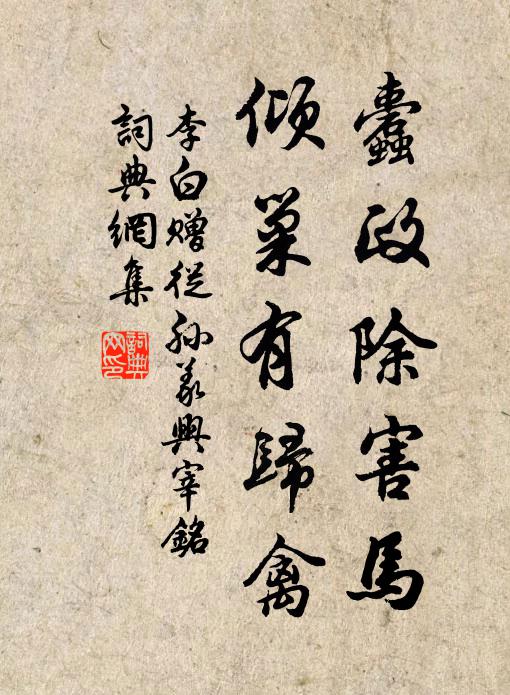 蠹政除害馬
傾巢有歸禽
李白贈從孫義興宰銘
詞典網集
詞典
网印